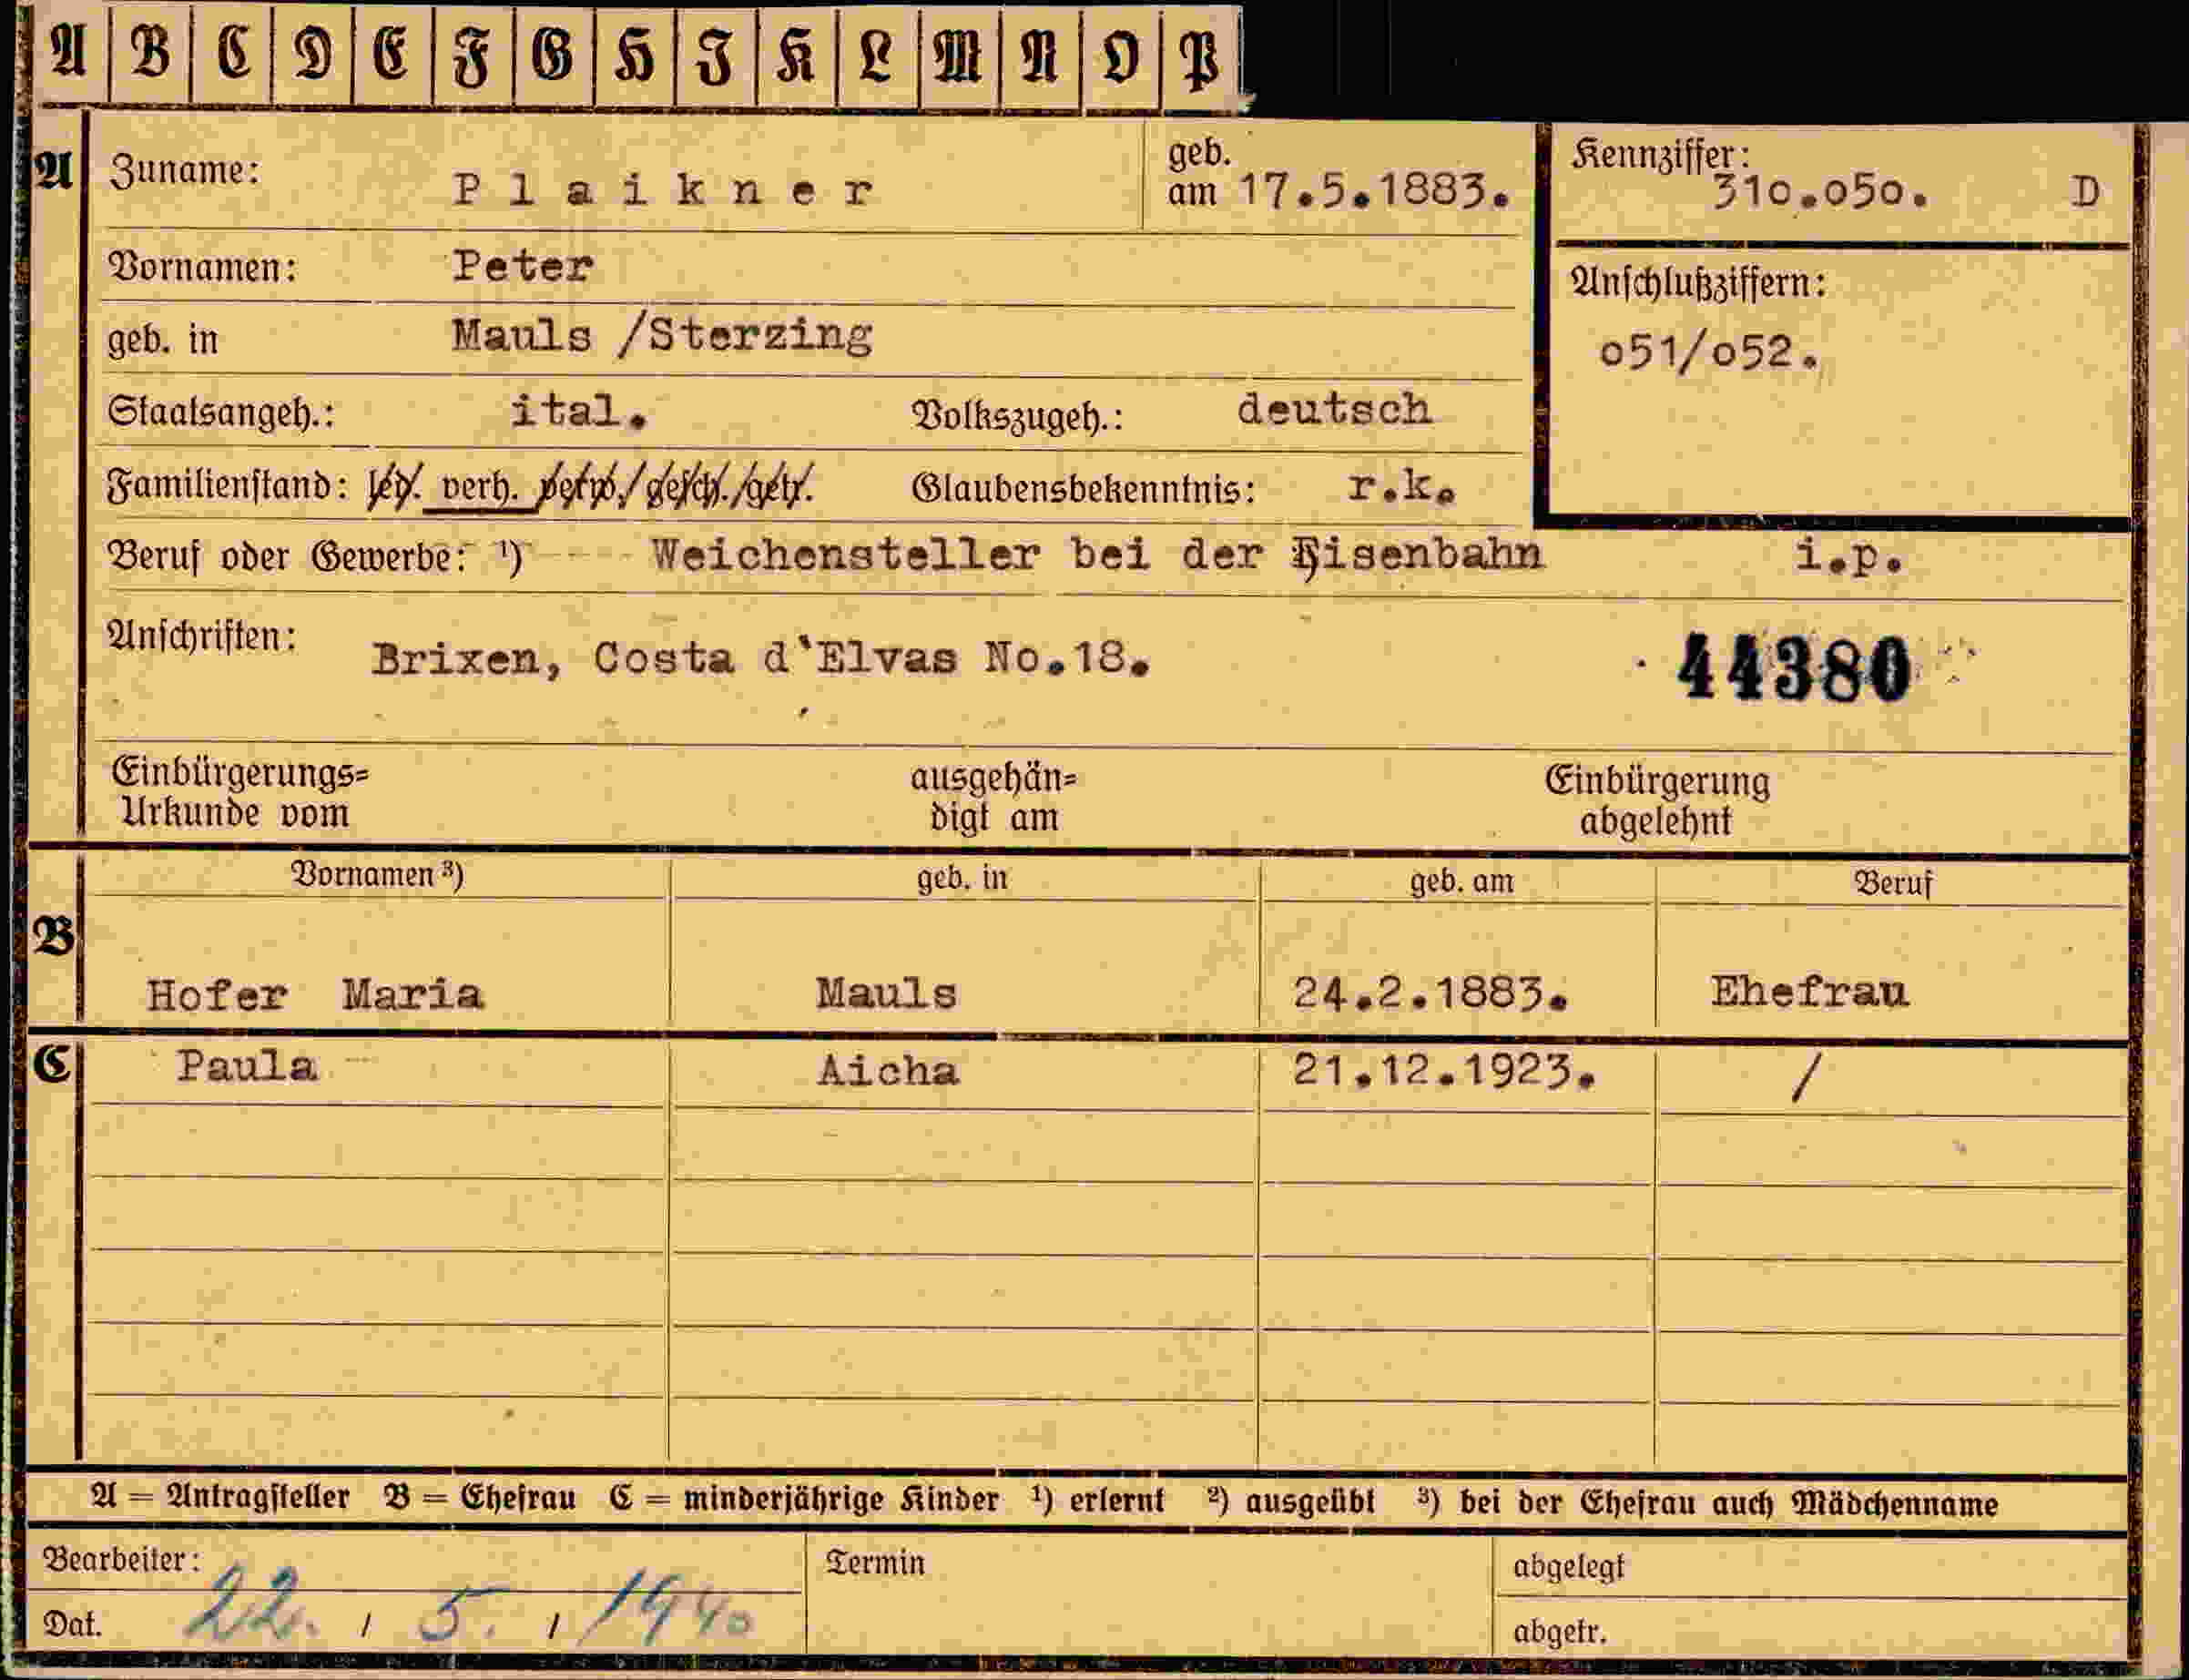 A B C D E F G H I K L M N O P
A Zuname: Plaikner geb. am 17.5.1883. Kennziffer: 310.050. D
Vornamen: Peter
Anschlußziffern:
geb. in Mauls /Sterzing
o51/o52.
Staatsangeh.: ital. Volkszugeh.: deutsch
Familienstand: led. verh. verw./gesch./getr. Glaubensbekenntnis: r.k.
Beruf oder Gewerbe: ¹) Weichensteller bei der Eisenbahn i.p.
Anschriften: Brixen, Costa d'Elvas No.18.
44380
Einbürgerungs= ausgehän= Einbürgerung
Urkunde vom digt am abgelehnt
Vornamen ³) geb. in geb. am Beruf
B
Hofer Maria Mauls 24.2.1883. Ehefrau
C Paula Aicha 21.12.1923. /
A = Antragsteller B = Ehefrau C = minderjährige Kinder ¹) erlernt ²) ausgeübt ³) bei der Ehefrau auch Mädchenname
Bearbeiter: Termin abgelegt
Dat. 22. / 5. / 1940 abgetr.